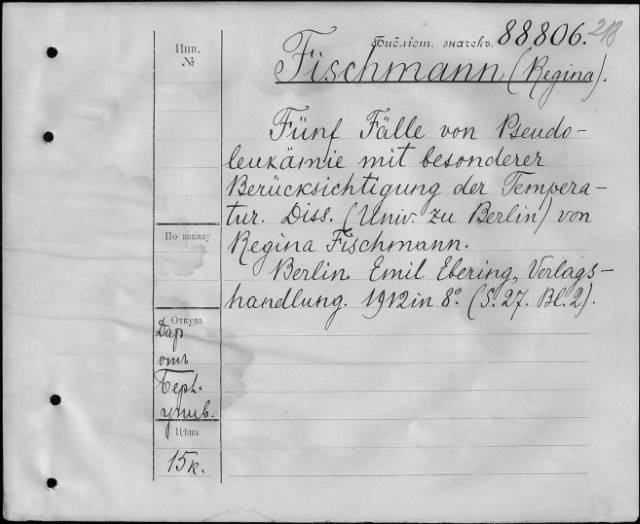 Инв.
№
Библіот. значекъ. 88806.
Fischmann (Regina).
Fünf Fälle von Pseudo-
leukämie mit besonderer
Berücksichtigung der Tempera-
tur. Diss. (Univ. zu Berlin) von
Regina Fischmann.
Berlin Emil Ebering, Verlags-
handlung. 1912 in 8°. (S. 27. Bl. 2).
По заказу
Откуда
Дар
отъ
Берл.
унив.
Цѣна
15к.